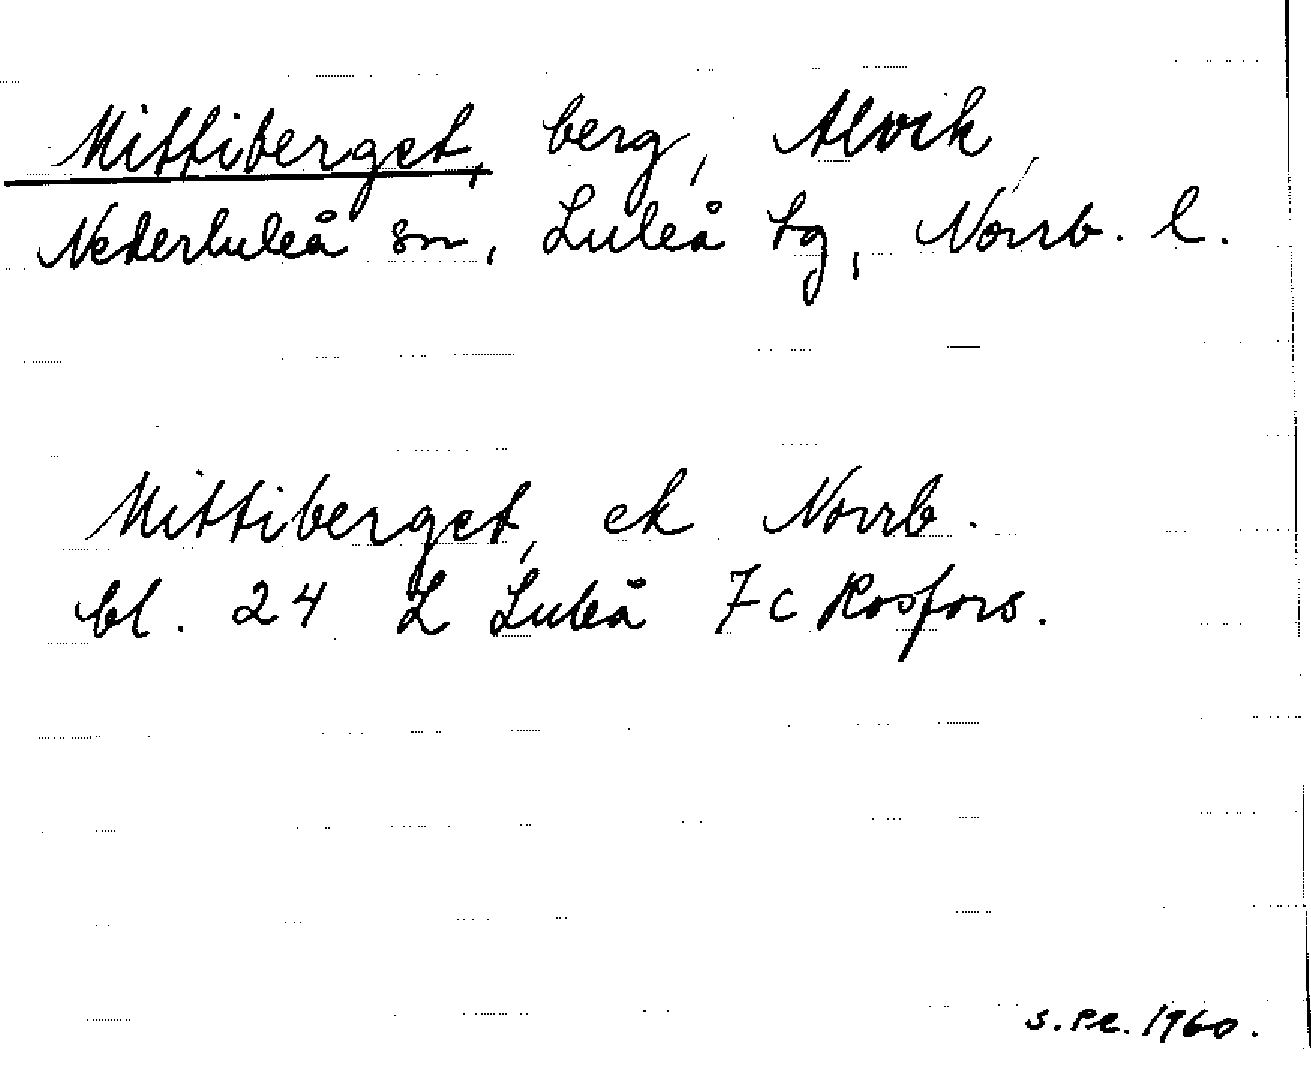 Mittiberget, berg, Alvik,
Nederluleå sn, Luleå tg, Norrb. l.
Mittiberget, ek Norrb.
bl. 24 L Luleå 7c Rosfors.
S.Pe. 1960.